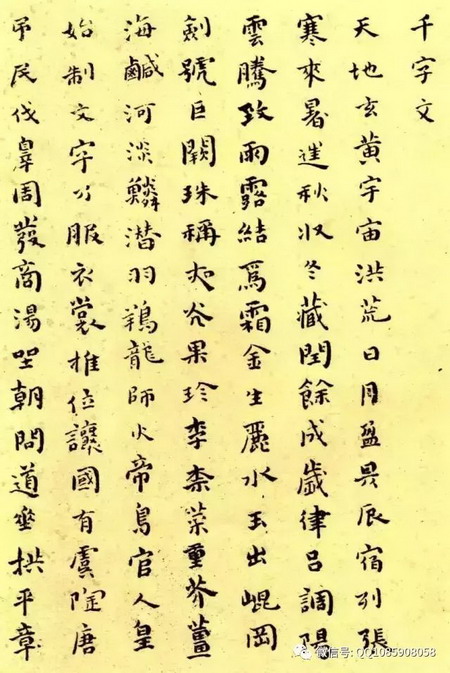 千字文
天地玄黄宇宙洪荒日月盈昃辰宿列張
寒來暑往秋收冬藏閏餘成歲律吕調陽
雲騰致雨露結爲霜金生麗水玉出崐岡
劍號巨闕珠稱夜光果珍李柰菜重芥薑
海鹹河淡鱗潜羽翔龍師火帝鳥官人皇
始制文字乃服衣裳推位讓國有虞陶唐
弔民伐辠周發商湯坐朝問道垂拱平章
微信号: QQ1085908058